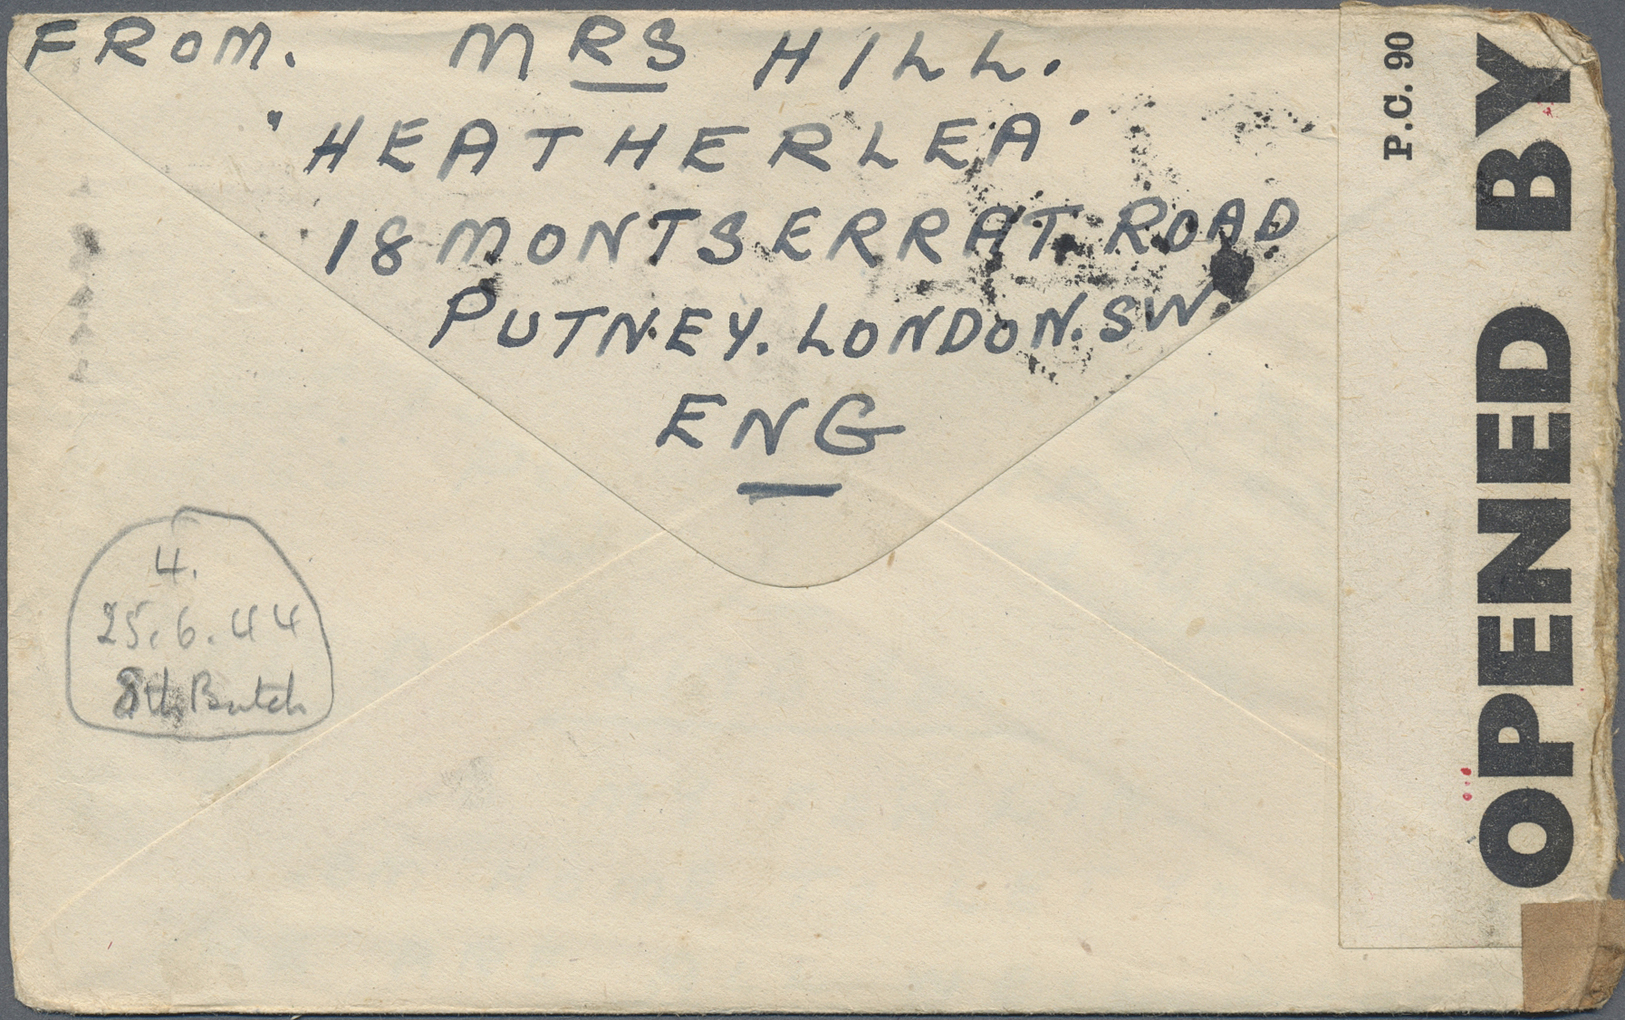 FROM. MRS HILL.
"HEATHERLEA"
18 MONTSERRAT ROAD
PUTNEY. LONDON. SW.
ENG
4.
25.6.44
8th Batch
P.C. 90
OPENED BY